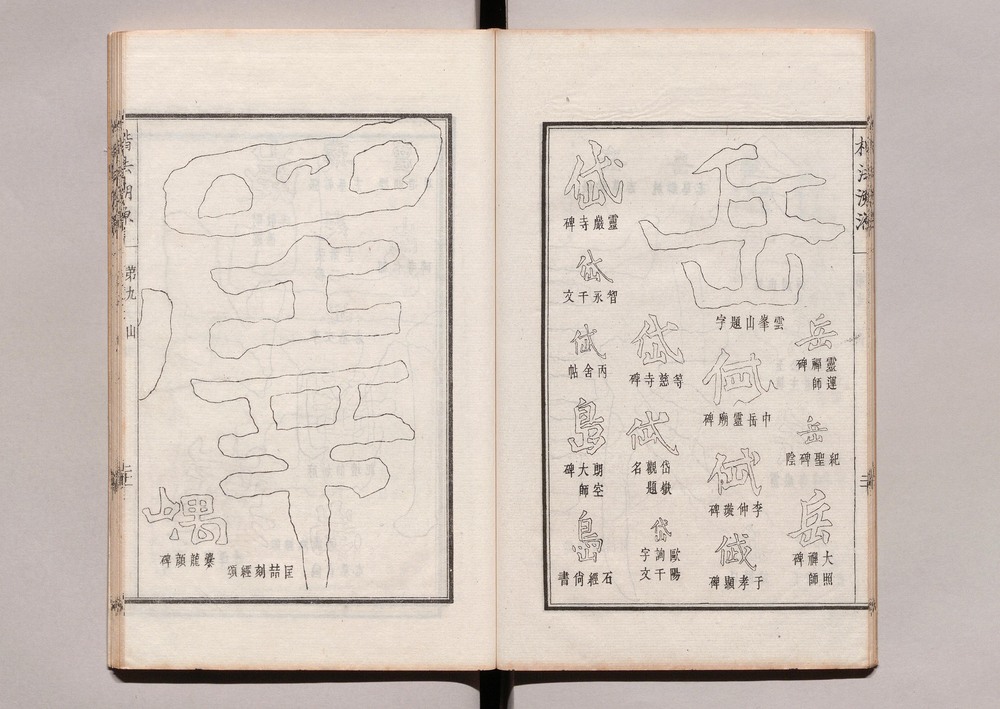 楷法溯源
岳
雲峯山題字
岳
靈運禪師碑
岳
紀聖碑陰
岳
大照禪師碑
岱
中岳靈廟碑
岱
李仲璇碑
岱
于孝顯碑
岱
等慈寺碑
岱
岱嶽觀題名
岱
歐陽詢千字文
岱
靈巖寺碑
岱
智永千文
岱
丙舍帖
島
朗空大師碑
島
石經尚書
匡喆刻經頌
嵎
爨龍顏碑
楷法溯源
第九 山